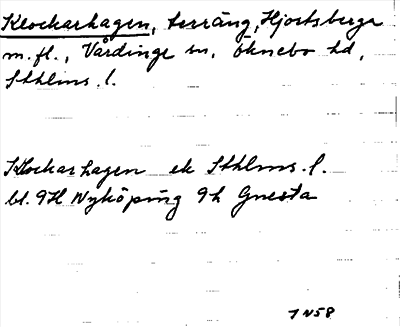 Klockarhagen, terräng, Hjortsberga
m.fl., Vårdinge sn, Öknebo hd,
Sthlms. l.
Klockarhagen ek Sthlms. l.
bl. 9H Nyköping 9h Gnesta
7 N58